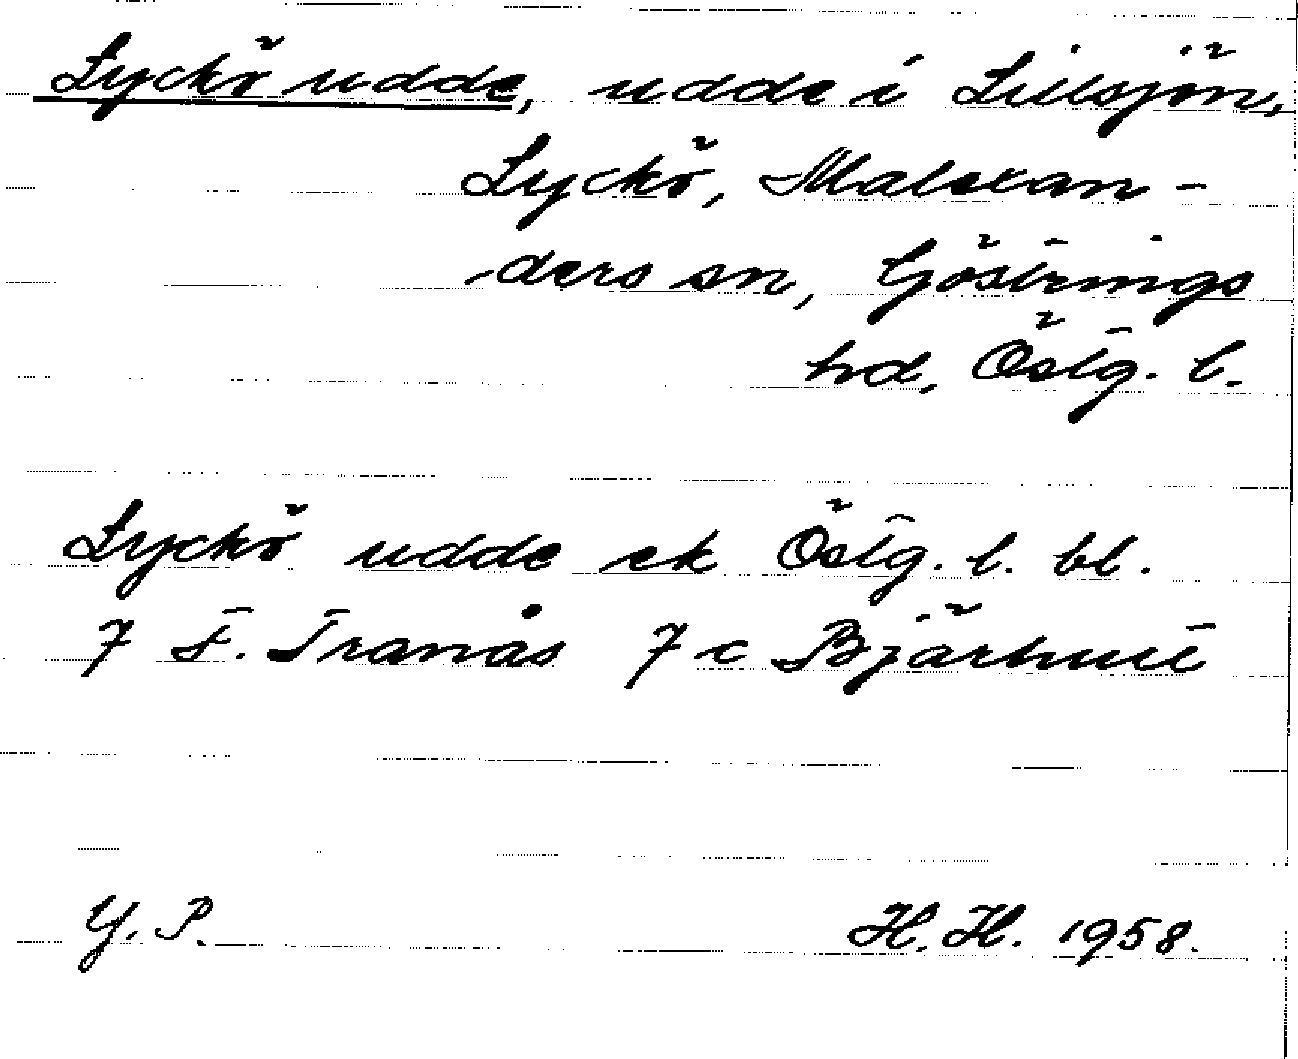 Lyckö udde, udde i Lillsjön,
Lyckö, Malexan-
ders sn, Göstrings
hd, Östg. l.
Lyckö udde ek Östg. l. bl.
7 F. Tranås 7 c Bjärhult
G. P. H. H. 1958.